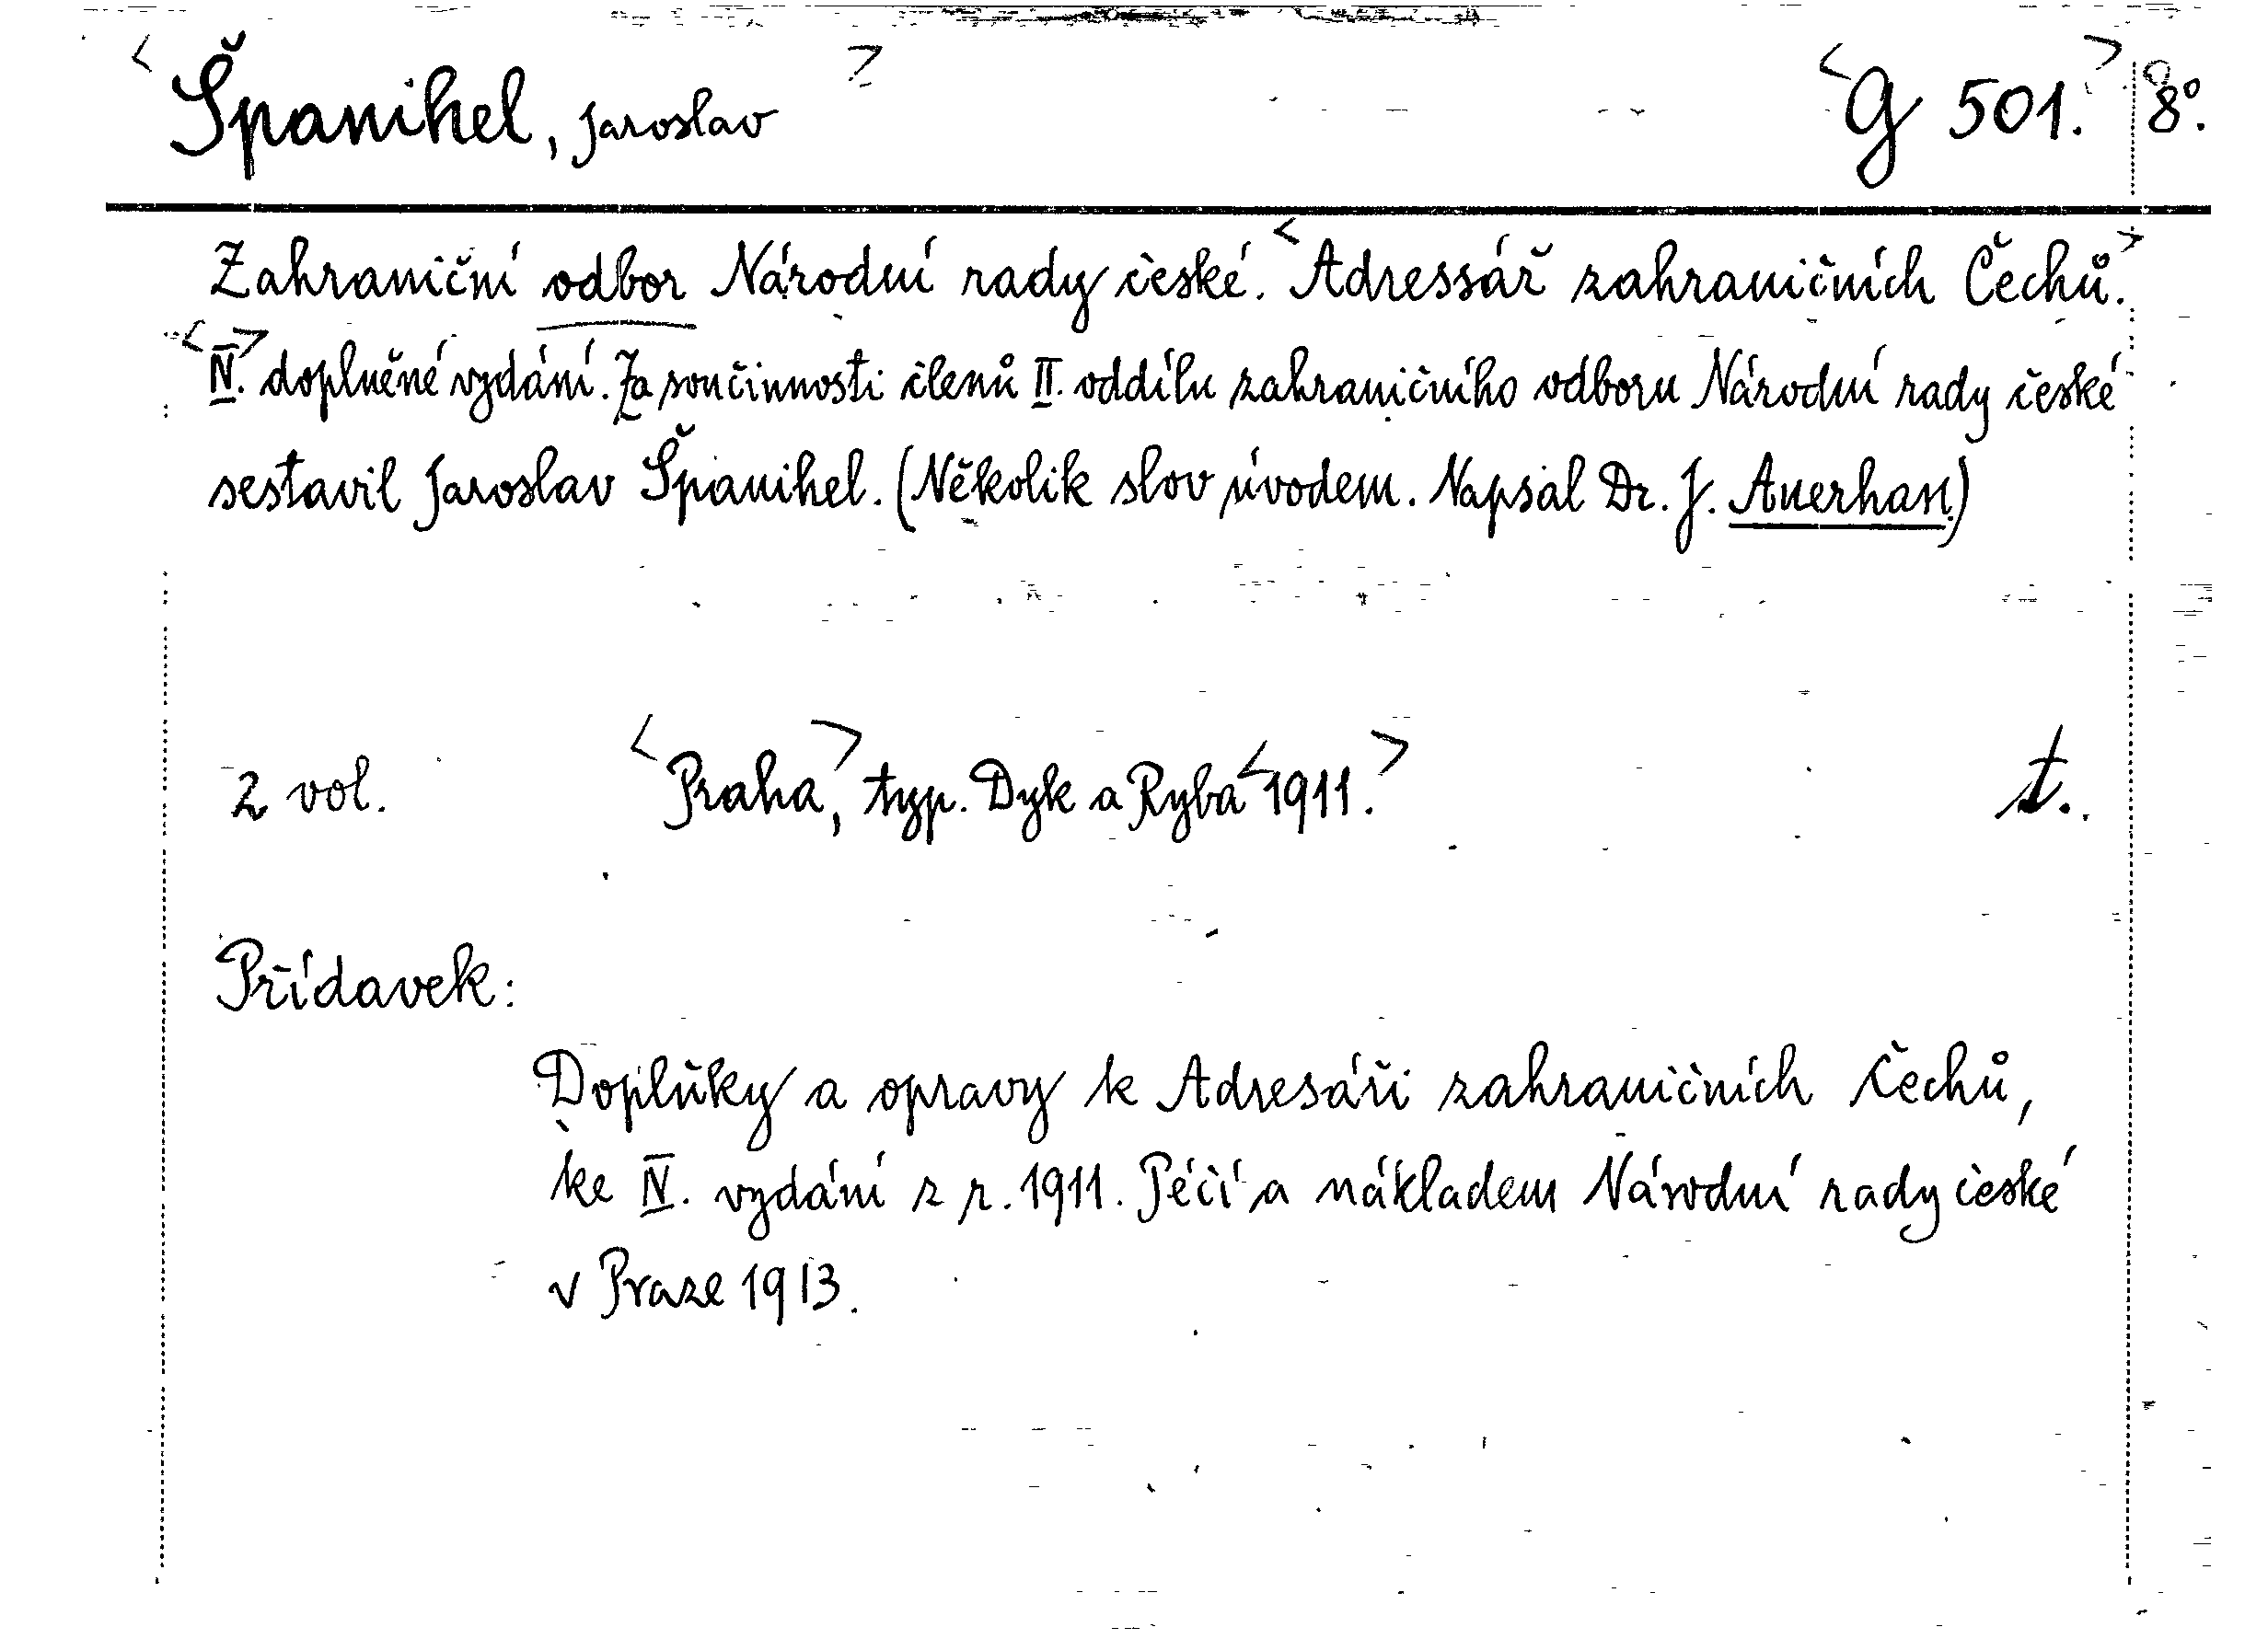 <Španihel, Jaroslav> <G 501.> 8°.
Zahraniční odbor Národní rady české. <Adressář zahraničních Čechů.>
<IV.> doplněné vydání. Za součinnosti členů II. oddílu zahraničního odboru Národní rady české
sestavil Jaroslav Španihel. (Několik slov úvodem. Napsal Dr. J. Auerhan.)
2 vol. <Praha,> typ. Dyk a Ryba <1911.> t.
Přídavek:
Doplňky a opravy k Adresáři zahraničních Čechů,
ke IV. vydání z r. 1911. Péčí a nákladem Národní rady české
v Praze 1913.